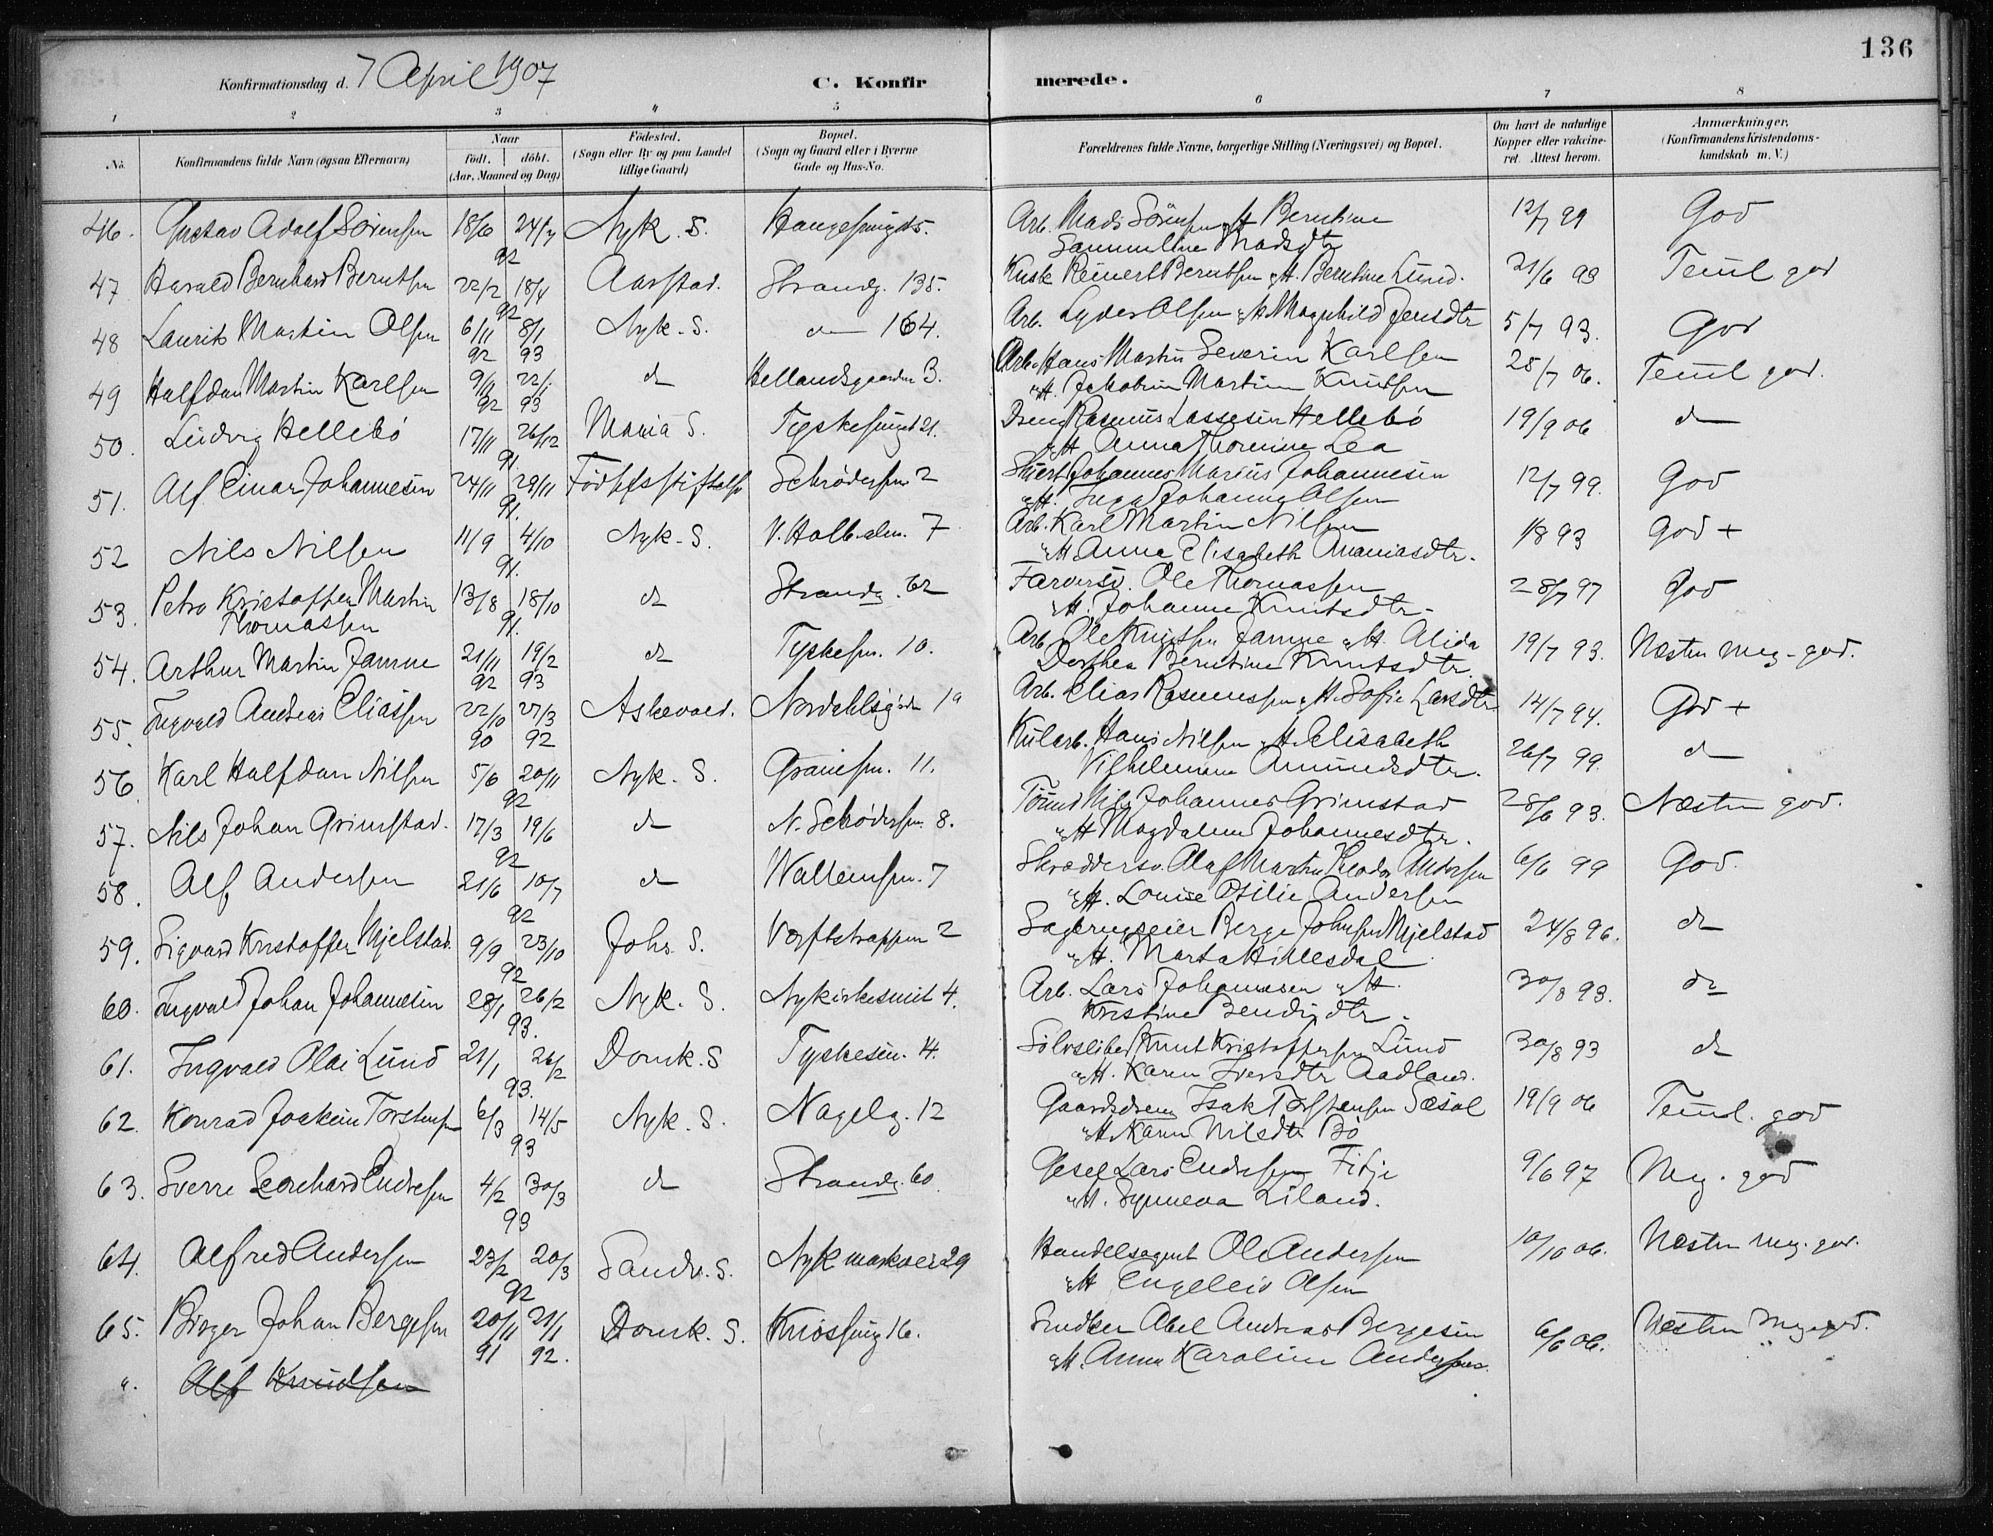 136
Konfirmationsdag d. 7 April 1907
C. Konfirmerede.
1 2 3 4 5 6 7 8
No.
Konfirmandens fulde Navn (ogsaa Efternavn)
Naar
født. døbt.
(Aar, Maaned og Dag)
Fødested.
(Sogn eller By og paa Landet
tillige Gaard)
Bopæl.
(Sogn og Gaard eller i Byerne
Gade og Hus-No.
Forældrenes fulde Navne, borgerlige Stilling (Næringsvei) og Bopæl.
Om havt de naturlige
Kopper eller vakcine-
ret. Attest herom.
Anmærkninger.
(Konfirmandens Kristendoms-
kundskab m. V.)
46. Gustav Adolf Sörensen 18/6 24/7 92 Nyk. S. Arb. Mads Sörensen og H. Berntine 12/7 99 God
Madsdtr
47. Harald Bernhard Berntsen 22/2 18/4 92 Aarstad. Strandg. 135. Kusk Reinert Berntsen og H. Berntine Lund. 21/6 93 Teml god
48 Laurits Martin Olsen 6/11 92 8/1 93 Nyk. S. do 164. Arb. Lyder Olsen og H. Magnhild Jensdtr 5/7 93. God
49 Halfdan Martin Karlsen 9/11 92 22/1 93 do Hellandsgaarden 3. Arb. Hans Martin Severin Karlsen 25/7 06. Teml god.
og H. Martine Knutsen
50. Ludvig Hellebö 17/11 26/12 91. Maria S. Tyskesmuget 21. Dreng Rasmus Lassesen Hellebö 19/9 06 do
og H. Anna Thomine Lea
51. Alf Einar Johannesen 24/11 29/11 91. Födselsstiftelse Schrödersm. 2 Johannes Marius Johannesen 12/7 99. God
og H. Inga Johanna Olsen
52 Nils Nilsen 11/9 4/10 91. Nyk. S. V. Holb. alm. 7 Arb. Karl Martin Nilsen 1/8 93 God +
og H. Anna Elisabeth Ananiasdtr.
53. Petro Kristoffer Martin 13/8 18/10 91. do Strandg. 62 Farversv. Ole Thomassen 28/7 97 God
Thomassen og H. Johanne Knutsdtr.
54. Arthur Martin Jamne 21/11 92 19/2 93 do Tyskesm. 10. Arb. Ole Knutsen Jamne og H. Alida 19/7 93. Næsten meg. god.
Dorthea Berntine Knutsdtr
55. Ingvald Andreas Eliassen 22/10 90 27/3 92 Askevold. Nordahlsgrdn 19 Arb. Elias Rasmussen og H. Sofie Larsdtr 14/7 94. God +
56. Karl Halfdan Nilsen 5/6 20/11 92 Nyk. S. Graniesm. 11. Kularb. Hans Nilsen og H. Elisabeth 26/7 99. do
Vilhelmine Amundsdtr.
57. Nils Johan Grimstad. 17/3 19/6 92 do N. Schrödersm. 8. Nils Johannes Grimstad 28/6 93. Næsten god.
og H. Magdalene Johannesdtr.
58. Alf Andersen 21/6 10/7 92 do Wallemsm. 7 Skræddersv. Olaf Martin Theodor Andersen 6/6 99 God.
og H. Louise Otilie Andersen
59. Sigvard Kristoffer Mjelstad. 9/9 23/10 92 Johs. S. Værftstrappen 2 Sagbrugseier Berge Johnsen Mjelstad 24/8 96. do
og H. Marta Hillesdal
60. Ingvald Johan Johannesen 28/1 26/2 93. Nyk. S. Nykirkesmit 4. Arb. Lars Johannesen og H. 30/8 93. do
Kristine Bendigdtr.
61. Ingvald Olai Lund 21/1 26/2 93. Domk. S Tyskesm. 4. Sölvsliber Knut Kristoffersen Lund 30/8 93 do
og H. Karen Iversdtr Aadland.
62. Konrad Joakim Torstensen 6/3 14/5 93 Nyk. S. Nagelg. 12 Gaardsdreng Isak Torstensen 19/9 06 Teml. god
og H. Karen Nilsdtr Bö
63. Sverre Leonhard Endresen 4/2 30/3 93 do Strandg. 60. Gesel Lars Endresen Fitje 9/6 97 Meg. god
og H. Synneva Liland.
64. Alfred Andersen 23/2 20/3 92 Sandv. S. Nyk markvei 29 Handelsagent Ole Andersen 10/10 06. Næsten meg. god.
og H. Engeleiv Olsen
65. Birger Johan Bergesen 20/11 91 21/1 92. Domk. S. Knösesmug 16. Snedker Abel Andreas Bergesen 6/6 06. Næsten Meg. god.
og H. Anna Karoline Andersen
". Alf Knudsen